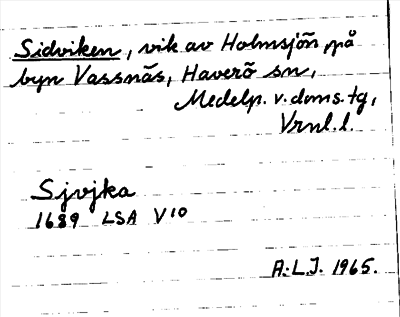 Sidviken, vik av Holmsjön, på
byn Vassnäs, Haverö sn,
Medelp. v. doms. tg,
Vrnl. l.
Sjvjka
1689 LSA V10
A.L.J. 1965.